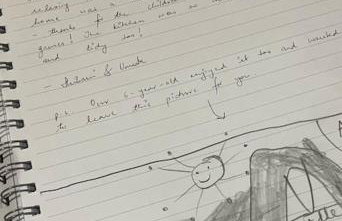 relaxing
home was a
- thanks for the children
games! The kitchen was so
and tidy too!
P.S. Our 6-year-old enjoyed it too and wanted
to leave this picture for you